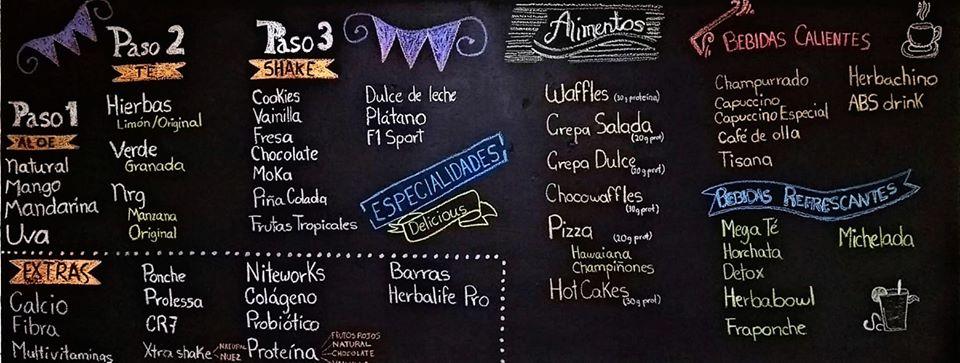 Paso 1
ALOE
Natural
Mango
Mandarina
Uva
Paso 2
TÉ
Hierbas
Limón/Original
Verde
Granada
Nrg
Manzana
Original
Paso 3
SHAKE
Cookies
Vainilla
Fresa
Chocolate
Moka
Piña Colada
Frutas Tropicales
Dulce de leche
Plátano
F1 Sport
ESPECIALIDADES
Delicious
EXTRAS
Calcio
Fibra
Multivitaminas
Ponche
Prolessa
CR7
Xtra shake
NATURAL
NUEZ
Niteworks
Colágeno
Probiótico
Proteína
FRUTOS ROJOS
NATURAL
CHOCOLATE
Barras
Herbalife Pro
Alimentos
Waffles (30g proteína)
Crepa Salada (20g prot)
Crepa Dulce (20g prot)
Chocowaffles (10g prot)
Pizza (20g prot)
Hawaiana
Champiñones
Hot Cakes (30g prot)
BEBIDAS CALIENTES
Champurrado
Capuccino
Capuccino Especial
Café de olla
Tisana
Herbachino
ABS drink
BEBIDAS REFRESCANTES
Mega Té
Horchata
Detox
Herbabowl
Fraponche
Michelada